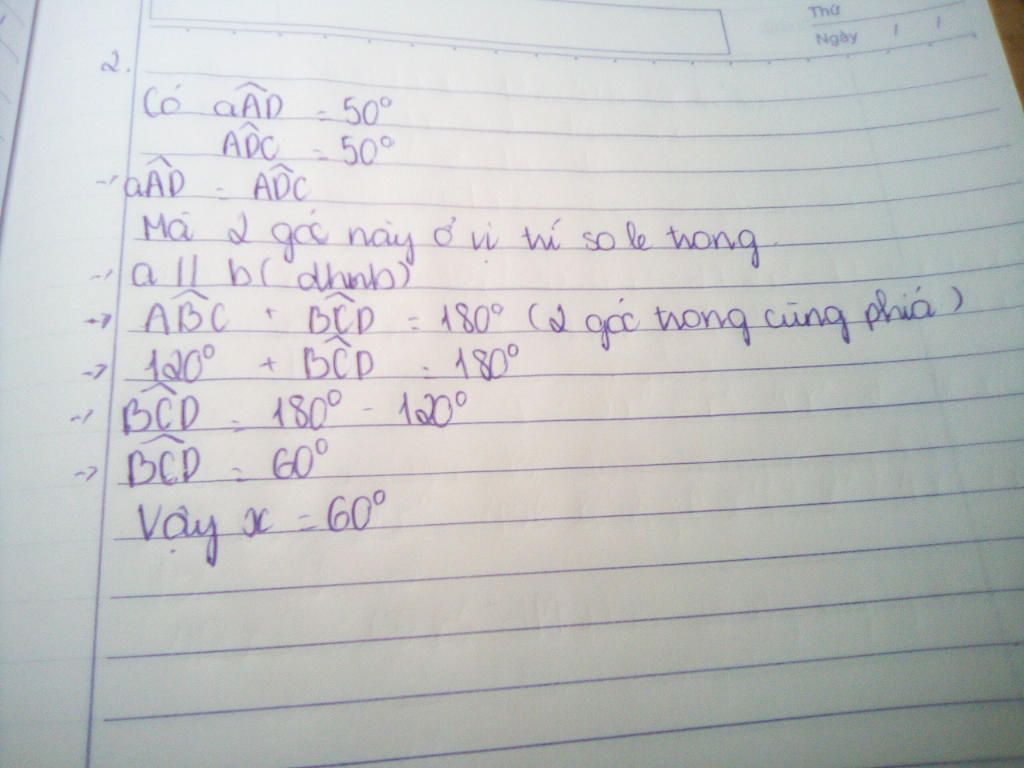 Thứ
Ngày / /
2.
Có aÂD = 50°
AD̂C = 50°
→ aÂD = AD̂C
Mà 2 góc này ở vị trí so le trong
→ a // b (dhnb)
→ AB̂C + BĈD = 180° (2 góc trong cùng phía)
→ 120° + BĈD = 180°
→ BĈD = 180° - 120°
→ BĈD = 60°
Vậy x = 60°